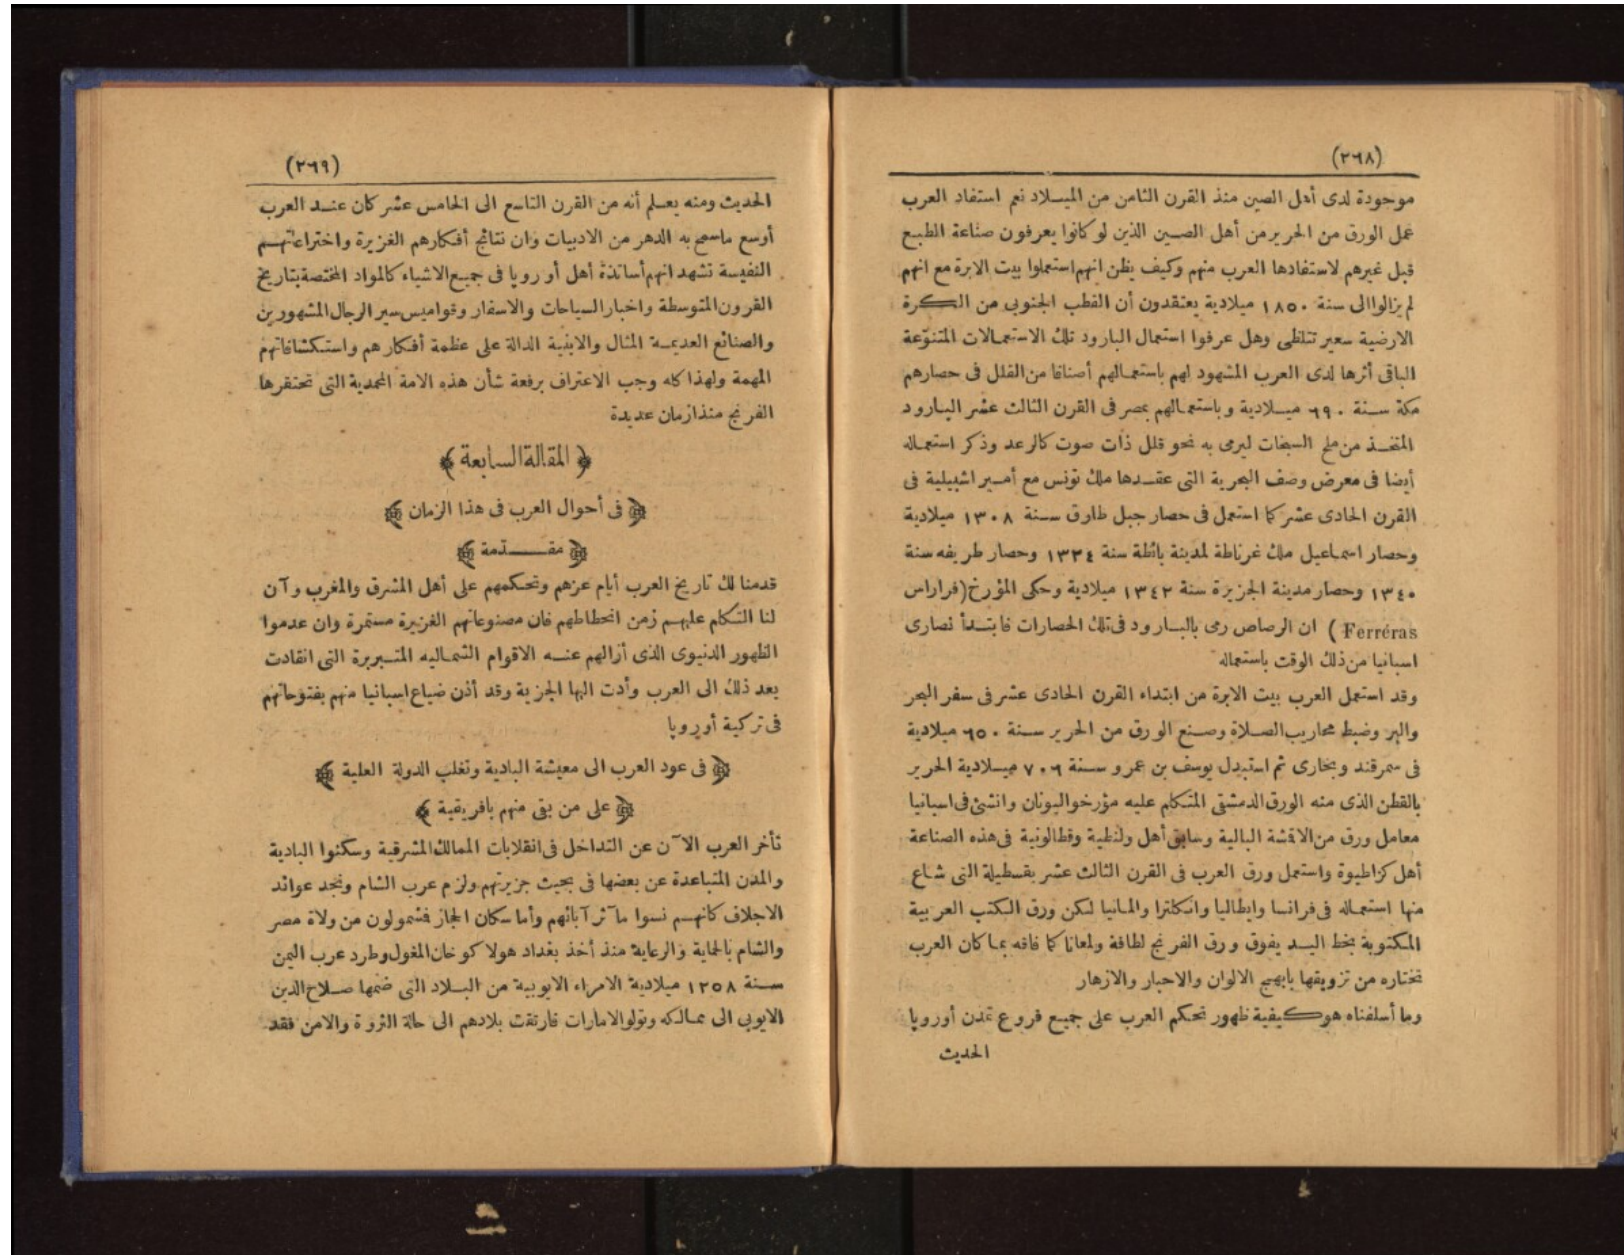 (٢٦٨)
موجودة لدى أهل الصين منذ القرن الثامن من الميلاد نعم استفاد العرب
عمل الورق من الحرير من أهل الصين الذين لو كانوا يعرفون صناعة الطبع
قبل غيرهم لاستفادها العرب منهم وكيف يظن انهم استعملوا بيت الابرة مع انهم
لم يزالوا الى سنة ١٨٥٠ ميلادية يعتقدون أن القطب الجنوبى من الكرة
الارضية سعير تتلظى وهل عرفوا استعمال البارود تلك الاستعمالات المتنوّعة
الباقى أثرها لدى العرب المشهود لهم باستعمالهم أصنافا من القلل فى حصارهم
مكة سنة ٦٩٠ ميلادية وباستعمالهم بمصر فى القرن الثالث عشر البارود
المتخذ من ملح السبخات ليرمى به نحو قلل ذات صوت كالرعد وذكر استعماله
أيضا فى معرض وصف البحرية التى عقدها ملك تونس مع أمير اشبيلية فى
القرن الحادى عشر كما استعمل فى حصار جبل طارق سنة ١٣٠٨ ميلادية
وحصار اسماعيل ملك غرناطة لمدينة بائطة سنة ١٣٢٤ وحصار طريفه سنة
١٣٤٠ وحصار مدينة الجزيرة سنة ١٣٤٢ ميلادية وحكى المؤرخ (فراراس
Ferréras) ان الرصاص رمى بالبارود فى تلك الحصارات فابتدأ نصارى
اسبانيا من ذلك الوقت باستعماله
وقد استعمل العرب بيت الابرة من ابتداء القرن الحادى عشر فى سفر البحر
والبر وضبط محاريب الصلاة وصنع الورق من الحرير سنة ٦٥٠ ميلادية
فى سمرقند وبخارى ثم استبدل يوسف بن عمرو سنة ٧٠٦ ميلادية الحرير
بالقطن الذى منه الورق الدمشقى المتكلم عليه مؤرخو اليونان وانشئ فى اسبانيا
معامل ورق من الاقشة البالية وسابق أهل ولنطية وقطالونية فى هذه الصناعة
أهل كزاطيوة واستعمل ورق العرب فى القرن الثالث عشر بقسطيلة التى شاع
منها استعماله فى فرانسا وايطاليا وانكلترا والمانيا لكن ورق الكتب العربية
المكتوبة بخط اليد يفوق ورق الفرنج لطافة ولمعانا كما فاقه بما كان العرب
تختاره من تزويقها بابهج الالوان والاحبار والازهار
وما أسلفناه هو كيفية ظهور تحكم العرب على جميع فروع تمدن أوروپا
الحديث
(٢٦٩)
الحديث ومنه يعلم أنه من القرن التاسع الى الخامس عشر كان عند العرب
أوسع ما سمح به الدهر من الادبيات وان نتائج أفكارهم الغزيرة واختراعاتهم
النفيسة تشهد انهم أساتذة أهل أوروپا فى جميع الاشياء كالمواد المختصة بتاريخ
القرون المتوسطة واخبار السياحات والاسفار وقواميس سير الرجال المشهورين
والصنائع العديمة المثال والابنية الدالة على عظمة أفكارهم واستكشافاتهم
المهمة ولهذا كله وجب الاعتراف برفعة شأن هذه الامة المحمدية التى تحتقرها
الفرنج منذ ازمان عديدة
﴿ المقالة السابعة ﴾
﴿ فى أحوال العرب فى هذا الزمان ﴾
﴿ مقدّمة ﴾
قدمنا لك تاريخ العرب أيام عزهم وتحكمهم على أهل المشرق والمغرب وآن
لنا التكلم عليهم زمن انحطاطهم فان مصنوعاتهم الغزيرة مستمرة وان عدموا
الظهور الدنيوى الذى أزالهم عنه الاقوام الشماليه المتبربرة التى انقادت
بعد ذلك الى العرب وأدت اليها الجزية وقد أذن ضياع اسبانيا منهم بفتوحاتهم
فى تركية أوروپا
﴿ فى عود العرب الى معيشة البادية وتغلب الدولة العلية ﴾
﴿ على من بقى منهم بافريقية ﴾
تأخر العرب الآن عن التداخل فى انقلابات الممالك المشرقية وسكنوا البادية
والمدن المتباعدة عن بعضها فى بحيث جزيرتهم ولزم عرب الشام ونجد عوائد
الاجلاف كانهم نسوا مآثر آبائهم وأما سكان الحجاز فشمولون من ولاة مصر
والشام بالحماية والرعاية منذ أخذ بغداد هولاكو خان المغول وطرد عرب اليمن
سنة ١٢٥٨ ميلادية الامراء الايوبية من البلاد التى ضمها صلاح الدين
الايوبى الى ممالكه وتولوا الامارات فارتقت بلادهم الى حالة الثروة والامن فقد